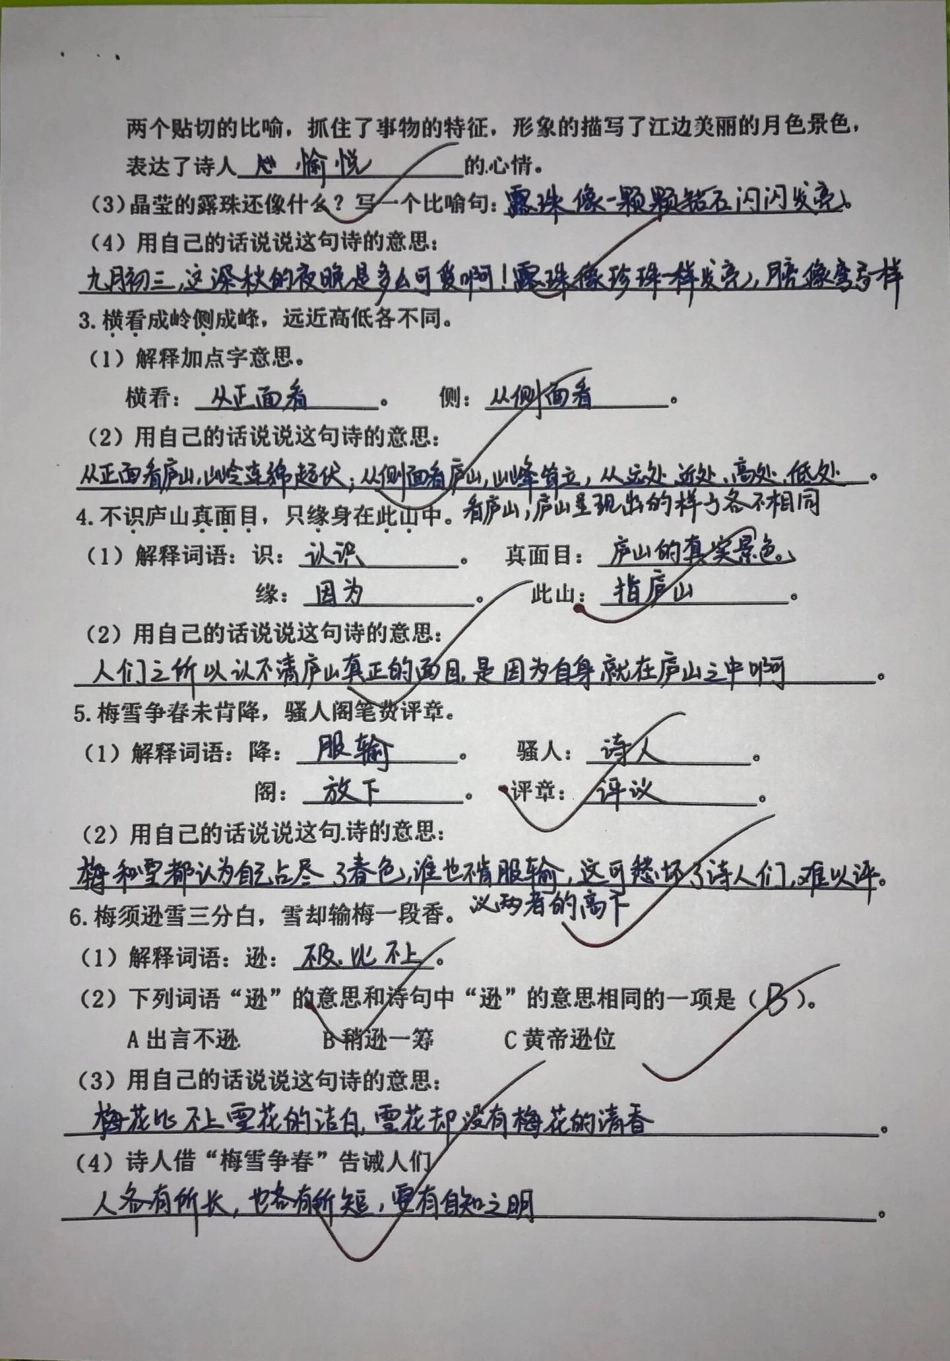 两个贴切的比喻，抓住了事物的特征，形象的描写了江边美丽的月色景色，
表达了诗人 愉悦 的心情。
(3)晶莹的露珠还像什么？写一个比喻句：露珠像一颗颗钻石闪闪发亮。
(4)用自己的话说说这句诗的意思：
九月初三，这深秋的夜晚是多么可爱啊！露珠像珍珠一样发亮，月 像弯弓样
3.横看成岭侧成峰，远近高低各不同。
(1)解释加点字意思。
横看： 从正面看 。 侧： 从侧面看 。
(2)用自己的话说说这句诗的意思：
从正面看庐山，山岭连绵起伏；从侧面看庐山，山峰耸立，从远处、近处、高处、低处 。
4.不识庐山真面目，只缘身在此山中。 看庐山，庐山呈现出的样子各不相同
(1)解释词语：识： 认识 。 真面目： 庐山的真实景色。
缘： 因为 。 此山： 指庐山 。
(2)用自己的话说说这句诗的意思：
人们之所以认不清庐山真正的面目，是因为自身就在庐山之中啊 。
5.梅雪争春未肯降，骚人阁笔费评章。
(1)解释词语：降： 服输 。 骚人： 诗人 。
阁： 放下 。 评章： 评议 。
(2)用自己的话说说这句诗的意思：
梅和雪都认为自己占尽了春色，谁也不肯服输，这可愁坏了诗人们，难以评。
6.梅须逊雪三分白，雪却输梅一段香。 议两者的高下
(1)解释词语：逊： 不及，比不上 。
(2)下列词语“逊”的意思和诗句中“逊”的意思相同的一项是（B）。
A 出言不逊 B 稍逊一筹 C 黄帝逊位
(3)用自己的话说说这句诗的意思：
梅花比不上雪花的洁白，雪花却没有梅花的清香 。
(4)诗人借“梅雪争春”告诫人们
人各有所长，也各有所短，要有自知之明 。